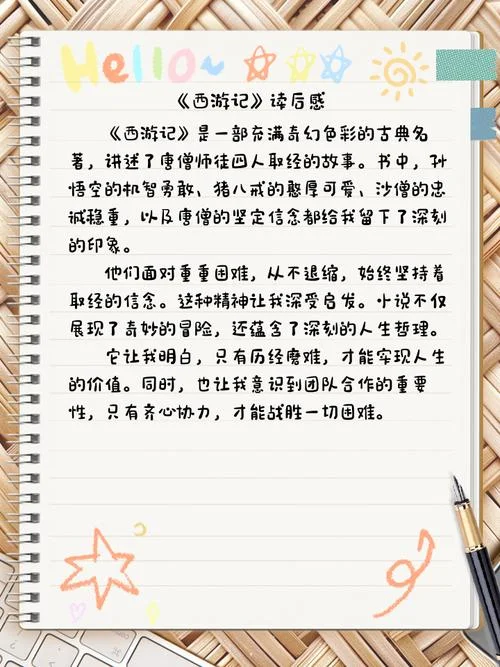 Hello~
《西游记》读后感
《西游记》是一部充满奇幻色彩的古典名
著，讲述了唐僧师徒四人取经的故事。书中，孙
悟空的机智勇敢、猪八戒的憨厚可爱、沙僧的忠
诚稳重，以及唐僧的坚定信念都给我留下了深刻
的印象。
他们面对重重困难，从不退缩，始终坚持着
取经的信念。这种精神让我深受启发。小说不仅
展现了奇妙的冒险，还蕴含了深刻的人生哲理。
它让我明白，只有历经磨难，才能实现人生
的价值。同时，也让我意识到团队合作的重要
性，只有齐心协力，才能战胜一切困难。